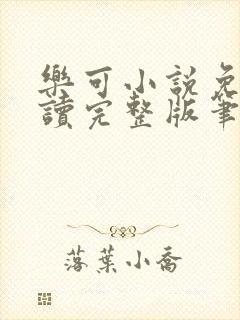 樂可小説免
讀完整版筆
落葉小喬